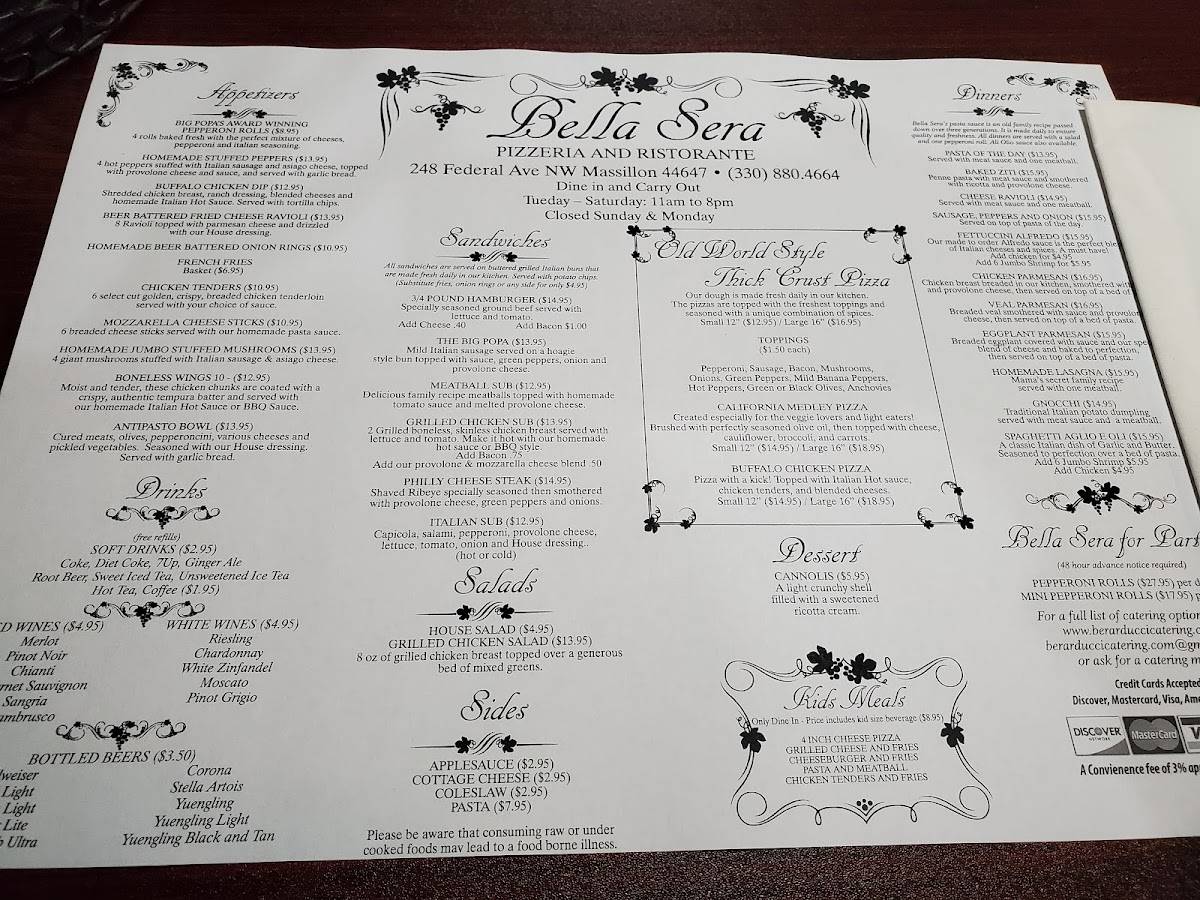 Appetizers
BIG POPA'S AWARD WINNING
PEPPERONI ROLLS ($8.95)
4 rolls baked fresh with the perfect mixture of cheeses,
pepperoni and italian seasoning.
HOMEMADE STUFFED PEPPERS ($13.95)
4 hot peppers stuffed with Italian sausage and asiago cheese, topped
with provolone cheese and sauce, and served with garlic bread.
BUFFALO CHICKEN DIP ($12.95)
Shredded chicken breast, ranch dressing, blended cheeses and
homemade Italian Hot Sauce. Served with tortilla chips.
BEER BATTERED FRIED CHEESE RAVIOLI ($13.95)
8 Ravioli topped with parmesan cheese and drizzled
with our House dressing.
HOMEMADE BEER BATTERED ONION RINGS ($10.95)
FRENCH FRIES
Basket ($6.95)
CHICKEN TENDERS ($10.95)
6 select cut golden, crispy, breaded chicken tenderloin
served with your choice of sauce.
MOZZARELLA CHEESE STICKS ($10.95)
6 breaded cheese sticks served with our homemade pasta sauce.
HOMEMADE JUMBO STUFFED MUSHROOMS ($13.95)
4 giant mushrooms stuffed with Italian sausage & asiago cheese.
BONELESS WINGS 10 - ($12.95)
Moist and tender, these chicken chunks are coated with a
crispy, authentic tempura batter and served with
our homemade Italian Hot Sauce or BBQ Sauce.
ANTIPASTO BOWL ($13.95)
Cured meats, olives, pepperoncini, various cheeses and
pickled vegetables. Seasoned with our House dressing.
Served with garlic bread.
Drinks
(free refills)
SOFT DRINKS ($2.95)
Coke, Diet Coke, 7Up, Ginger Ale
Root Beer, Sweet Iced Tea, Unsweetened Ice Tea
Hot Tea, Coffee ($1.95)
D WINES ($4.95)
Merlot
Pinot Noir
Chianti
rnet Sauvignon
Sangria
ambrusco
WHITE WINES ($4.95)
Riesling
Chardonnay
White Zinfandel
Moscato
Pinot Grigio
BOTTLED BEERS ($3.50)
weiser
Light
Light
Lite
Ultra
Corona
Stella Artois
Yuengling
Yuengling Light
Yuengling Black and Tan
Bella Sera
PIZZERIA AND RISTORANTE
248 Federal Ave NW Massillon 44647 • (330) 880.4664
Dine in and Carry Out
Tueday – Saturday: 11am to 8pm
Closed Sunday & Monday
Sandwiches
All sandwiches are served on buttered grilled Italian buns that
are made fresh daily in our kitchen. Served with potato chips.
(Substitute fries, onion rings or any side for only $4.95)
3/4 POUND HAMBURGER ($14.95)
Specially seasoned ground beef served with
lettuce and tomato.
Add Cheese .40 Add Bacon $1.00
THE BIG POPA ($13.95)
Mild Italian sausage served on a hoagie
style bun topped with sauce, green peppers, onion and
provolone cheese.
MEATBALL SUB ($12.95)
Delicious family recipe meatballs topped with homemade
tomato sauce and melted provolone cheese.
GRILLED CHICKEN SUB ($13.95)
2 Grilled boneless, skinless chicken breast served with
lettuce and tomato. Make it hot with our homemade
hot sauce or BBQ style.
Add Bacon .75
Add our provolone & mozzarella cheese blend .50
PHILLY CHEESE STEAK ($14.95)
Shaved Ribeye specially seasoned then smothered
with provolone cheese, green peppers and onions.
ITALIAN SUB ($12.95)
Capicola, salami, pepperoni, provolone cheese,
lettuce, tomato, onion and House dressing..
(hot or cold)
Salads
HOUSE SALAD ($4.95)
GRILLED CHICKEN SALAD ($13.95)
8 oz of grilled chicken breast topped over a generous
bed of mixed greens.
Sides
APPLESAUCE ($2.95)
COTTAGE CHEESE ($2.95)
COLESLAW ($2.95)
PASTA ($7.95)
Please be aware that consuming raw or under
cooked foods may lead to a food borne illness.
Old World Style
Thick Crust Pizza
Our dough is made fresh daily in our kitchen.
The pizzas are topped with the freshest toppings and
seasoned with a unique combination of spices.
Small 12" ($12.95) / Large 16" ($16.95)
TOPPINGS
($1.50 each)
Pepperoni, Sausage, Bacon, Mushrooms,
Onions, Green Peppers, Mild Banana Peppers,
Hot Peppers, Green or Black Olives, Anchovies
CALIFORNIA MEDLEY PIZZA
Created especially for the veggie lovers and light eaters!
Brushed with perfectly seasoned olive oil, then topped with cheese,
cauliflower, broccoli, and carrots.
Small 12" ($14.95) / Large 16" ($18.95)
BUFFALO CHICKEN PIZZA
Pizza with a kick! Topped with Italian Hot sauce,
chicken tenders, and blended cheeses.
Small 12" ($14.95) / Large 16" ($18.95)
Dessert
CANNOLIS ($5.95)
A light crunchy shell
filled with a sweetened
ricotta cream.
Kids Meals
Only Dine In - Price includes kid size beverage ($8.95)
4 INCH CHEESE PIZZA
GRILLED CHEESE AND FRIES
CHEESEBURGER AND FRIES
PASTA AND MEATBALL
CHICKEN TENDERS AND FRIES
Dinners
Bella Sera's pasta sauce is an old family recipe passed
down over three generations. It is made daily to ensure
quality and freshness. All dinners are served with a salad
and one pepperoni roll. Ali Olio sauce also available.
PASTA OF THE DAY ($13.95)
Served with meat sauce and one meatball.
BAKED ZITI ($15.95)
Penne pasta with meat sauce and smothered
with ricotta and provolone cheese.
CHEESE RAVIOLI ($14.95)
Served with meat sauce and one meatball.
SAUSAGE, PEPPERS AND ONION ($15.95)
Served on top of pasta of the day.
FETTUCCINI ALFREDO ($15.95)
Our made to order Alfredo sauce is the perfect ble
of Italian cheeses and spices. A must have!
Add chicken for $4.95
Add 6 Jumbo Shrimp for $5.95
CHICKEN PARMESAN ($16.95)
Chicken breast breaded in our kitchen, smothered wit
and provolone cheese, then served on top of a bed of
VEAL PARMESAN ($16.95)
Breaded veal smothered with sauce and provolon
cheese, then served on top of a bed of pasta.
EGGPLANT PARMESAN ($15.95)
Breaded eggplant covered with sauce and our spe
blend of cheese and baked to perfection,
then served on top of a bed of pasta.
HOMEMADE LASAGNA ($15.95)
Mama's secret family recipe
served with one meatball.
GNOCCHI ($14.95)
Traditional Italian potato dumpling
served with meat sauce and a meatball.
SPAGHETTI AGLIO E OLI ($15.95)
A classic Italian dish of Garlic and Butter.
Seasoned to perfection over a bed of pasta.
Add 6 Jumbo Shrimp $5.95
Add Chicken $4.95
Bella Sera for Part
(48 hour advance notice required)
PEPPERONI ROLLS ($27.95) per d
MINI PEPPERONI ROLLS ($17.95) p
For a full list of catering option
www.berarduccicatering.c
berarduccicatering.com@gm
or ask for a catering m
Credit Cards Accepted
Discover, Mastercard, Visa, Ame
DISCOVER
NETWORK
MasterCard
V
A Convienence fee of 3% ap